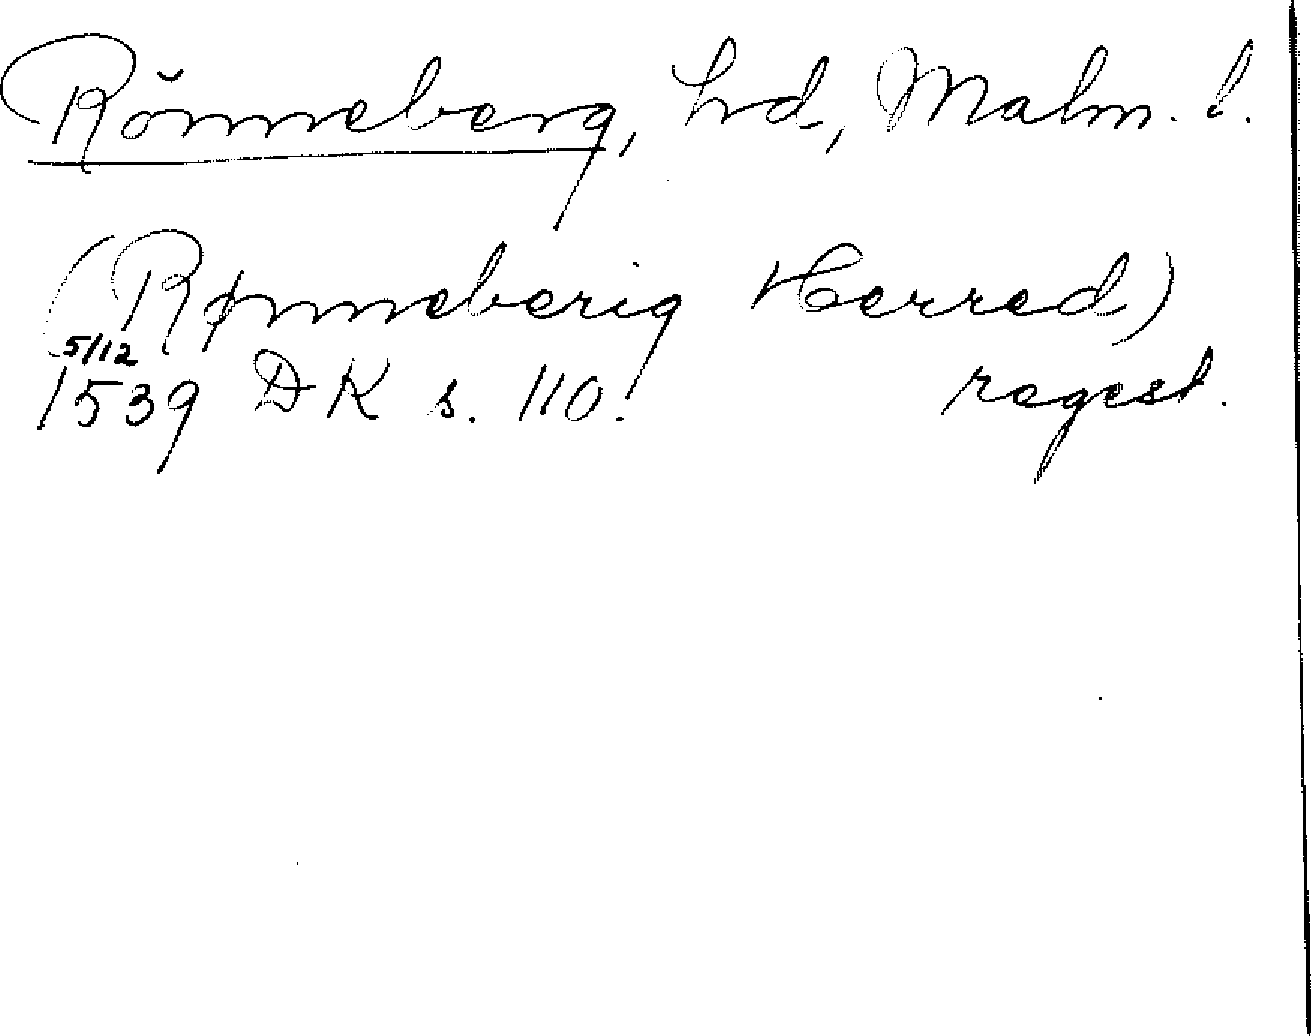 Rönneberg, hd, Malm. l.
(Rønneberig Herred)
5/12
1539 DK s. 110. regest.